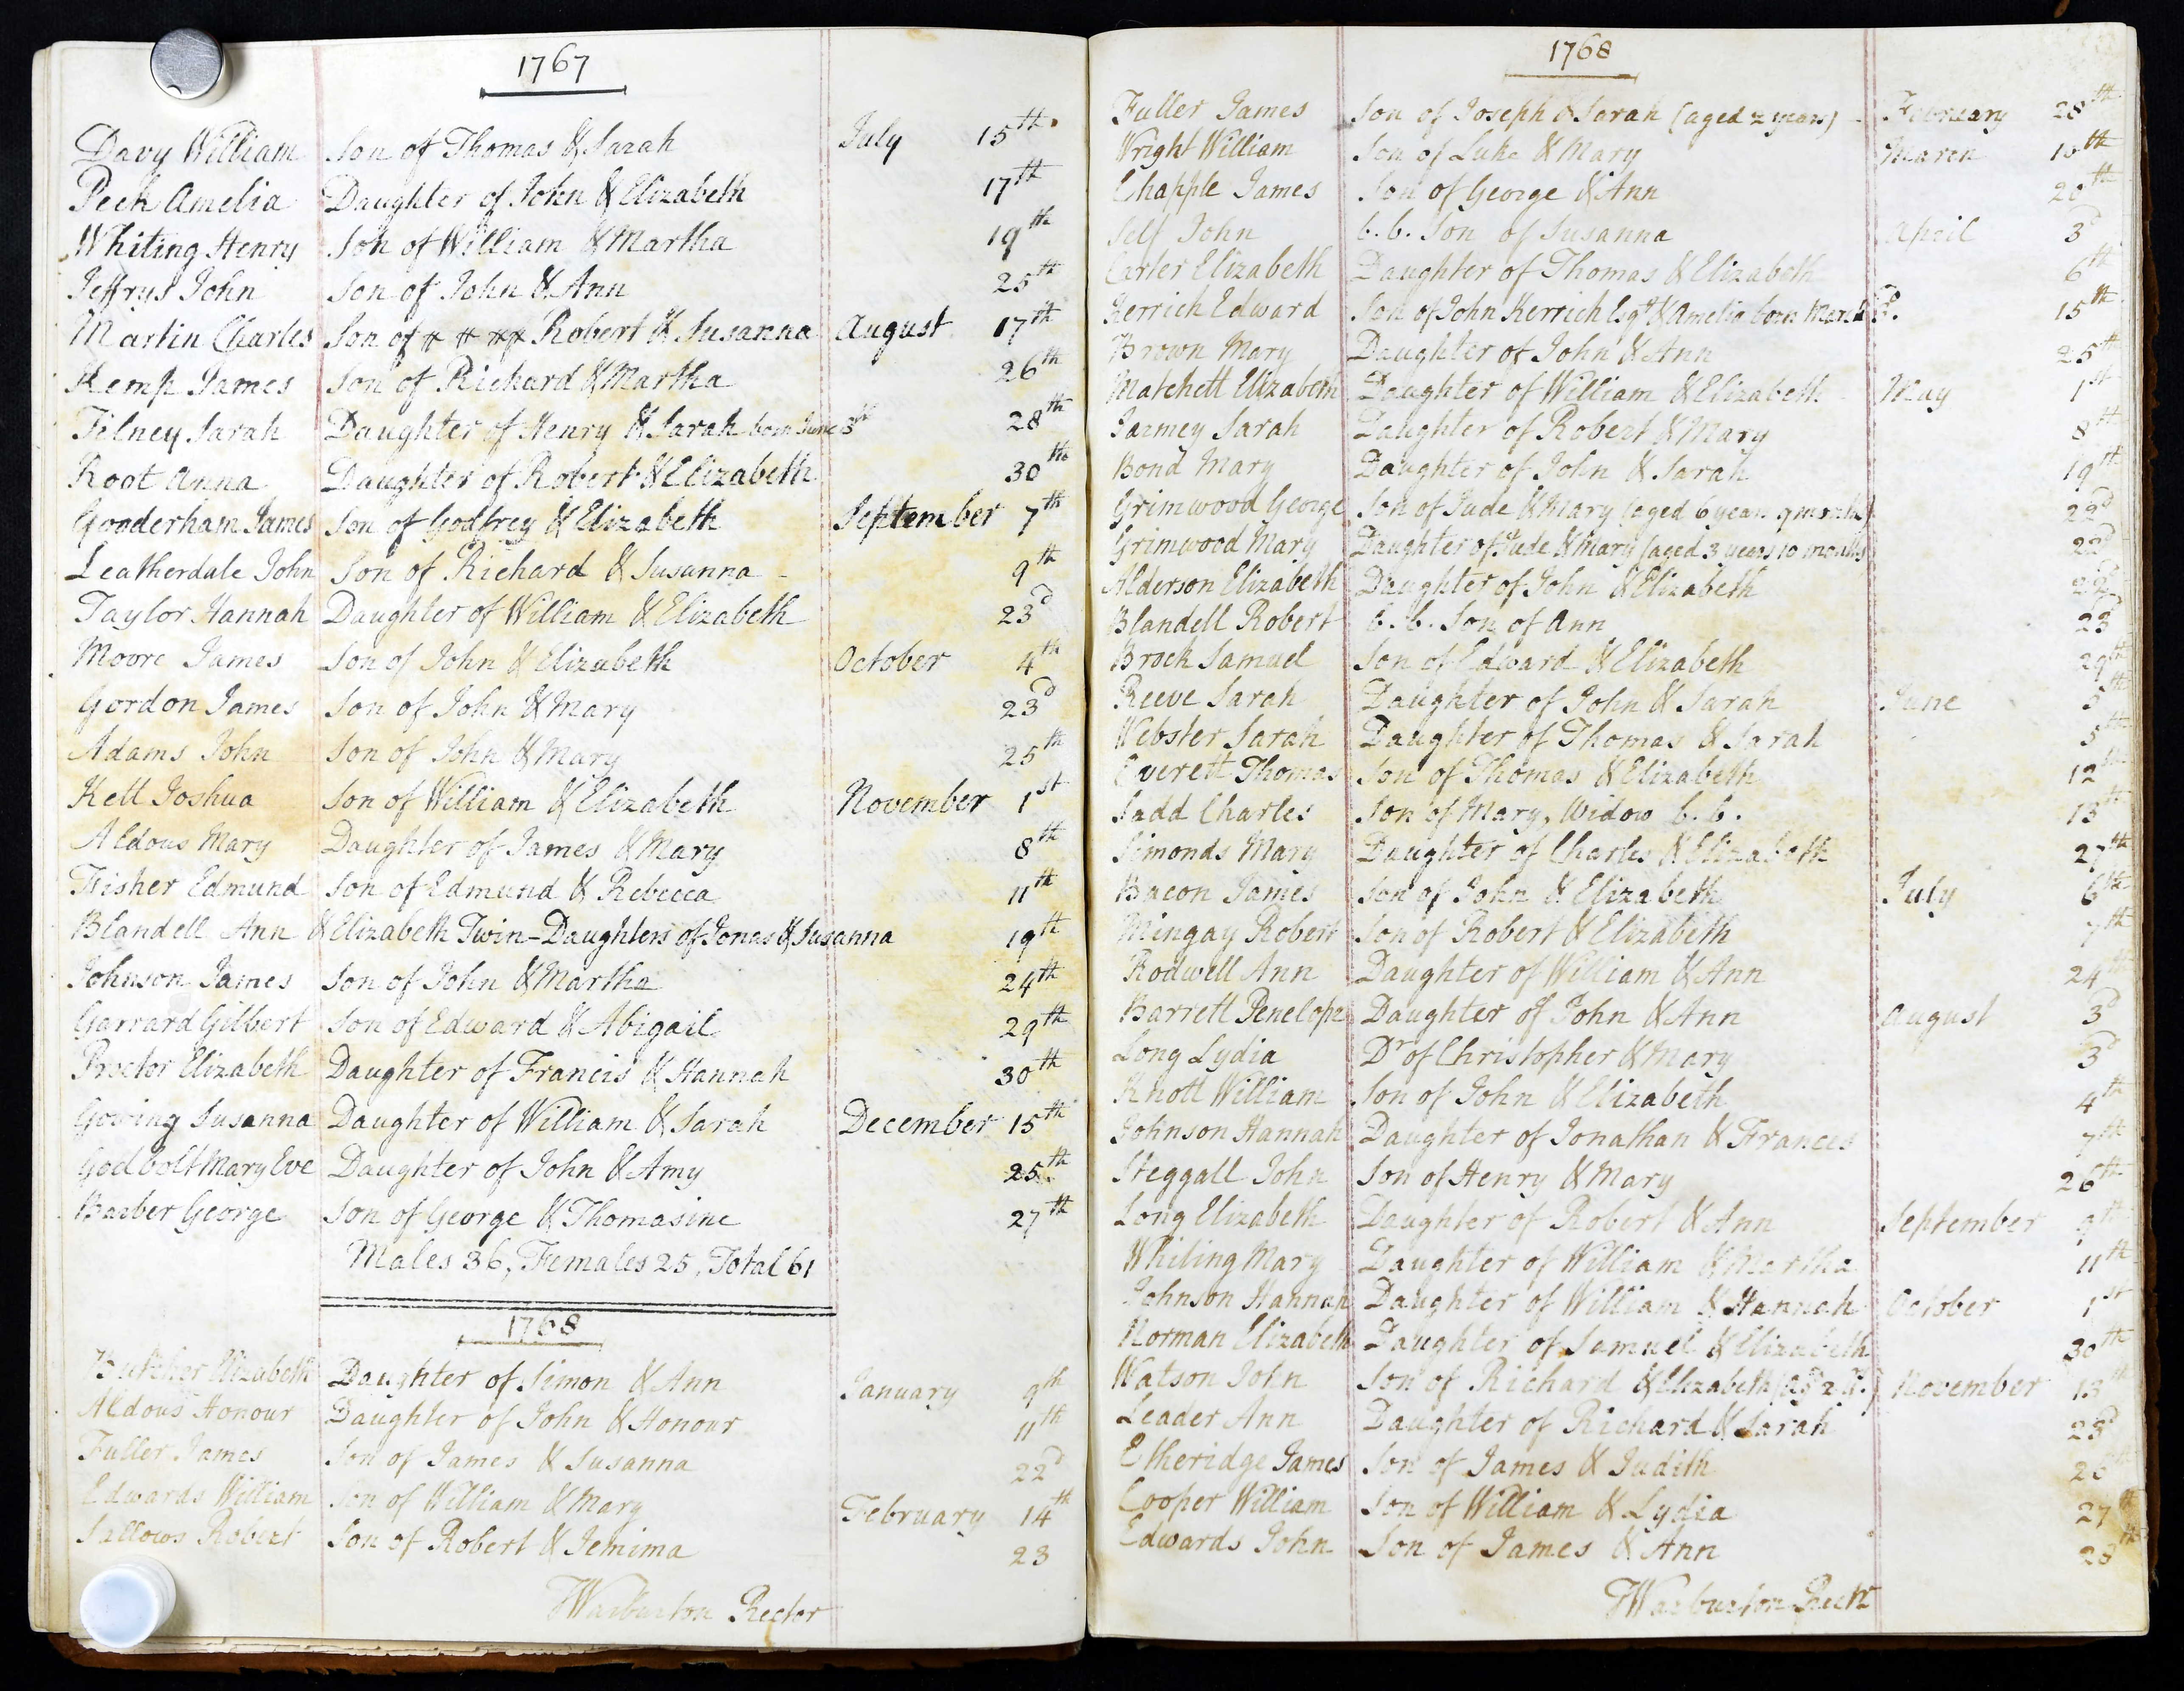 1767
Davy William Son of Thomas & Sarah July 15th
Peck Amelia Daughter of John & Elizabeth 17th
Whiting Henry Son of William & Martha 19th
Jeffrys John Son of John & Ann 25th
Martin Charles Son of Robert & Susanna August 17th
Kemp James Son of Richard & Martha 26th
Tilney Sarah Daughter of Henry & Sarah born June 3d 28th
Root Anna Daughter of Robert & Elizabeth 30th
Gooderham James Son of Godfrey & Elizabeth September 7th
Leatherdale John Son of Richard & Susanna - 9th
Taylor Hannah Daughter of William & Elizabeth 23d
Moore James Son of John & Elizabeth October 4th
Gordon James Son of John & Mary 23d
Adams John Son of John & Mary 25th
Kell Joshua Son of William & Elizabeth November 1st
Aldous Mary Daughter of James & Mary 8th
Fisher Edmund Son of Edmund & Rebecca 11th
Blandell Ann & Elizabeth Twin-Daughters of Jonas & Susanna 19th
Johnson James Son of John & Martha 24th
Garrard Gilbert Son of Edward & Abigail 29th
Proctor Elizabeth Daughter of Francis & Hannah 30th
Gowing Susanna Daughter of William & Sarah December 15th
Godbolt Mary Eve Daughter of John & Amy 25th
Barber George Son of George & Thomasine 27th
Males 36, Females 25, Total 61
1768
Butcher Elizabeth Daughter of Simon & Ann January 9th
Aldous Honour Daughter of John & Honour 11th
Fuller James Son of James & Susanna 22d
Edwards William Son of William & Mary February 14th
Sallows Robert Son of Robert & Jemima 23
TWarburton Rector
1768
Fuller James Son of Joseph & Sarah (aged 2 years) - February 28th
Wright William Son of Luke & Mary March 10th
Chapple James Son of George & Ann 20th
Self John b.b. Son of Susanna April 3d
Carter Elizabeth Daughter of Thomas & Elizabeth 6th
Kerrich Edward Son of John Kerrich Esqr & Amelia born March 15th
Brown Mary Daughter of John & Ann 25th
Matchett Elizabeth Daughter of William & Elizabeth May 1st
Jarmey Sarah Daughter of Robert & Mary 8th
Bond Mary Daughter of John & Sarah 19th
Grimwood George Son of Jude & Mary (aged 6 years 9 months) 22d
Grimwood Mary Daughter of Jude & Mary (aged 3 years 10 months) 22d
Alderson Elizabeth Daughter of John & Elizabeth 22d
Blandell Robert b.b. Son of Ann 23
Brock Samuel Son of Edward & Elizabeth 29th
Reeve Sarah Daughter of John & Sarah June 5th
Webster Sarah Daughter of Thomas & Sarah 5th
Everett Thomas Son of Thomas & Elizabeth 12th
Sadd Charles Son of Mary, Widow b.b. 13th
Simonds Mary Daughter of Charles & Elizabeth 27th
Bacon James Son of John & Elizabeth July 6th
Mingay Robert Son of Robert & Elizabeth 7th
Rodwell Ann Daughter of William & Ann 24th
Barrett Penelope Daughter of John & Ann August 3d
Long Lydia Dr of Christopher & Mary 3d
Knott William Son of John & Elizabeth 4th
Johnson Hannah Daughter of Jonathan & Frances 7th
Steggall John Son of Henry & Mary 26th
Long Elizabeth Daughter of Robert & Ann September 9th
Whiting Mary Daughter of William & Martha 11th
Johnson Hannah Daughter of William & Hannah October 1st
Norman Elizabeth Daughter of Samuel & Elizabeth 30th
Watson John Son of Richard & Elizabeth November 13th
Leader Ann Daughter of Richard & Sarah 23d
Etheridge James Son of James & Judith
Cooper William Son of William & Lydia 27th
Edwards John Son of James & Ann 28th
TWarburton Rectr